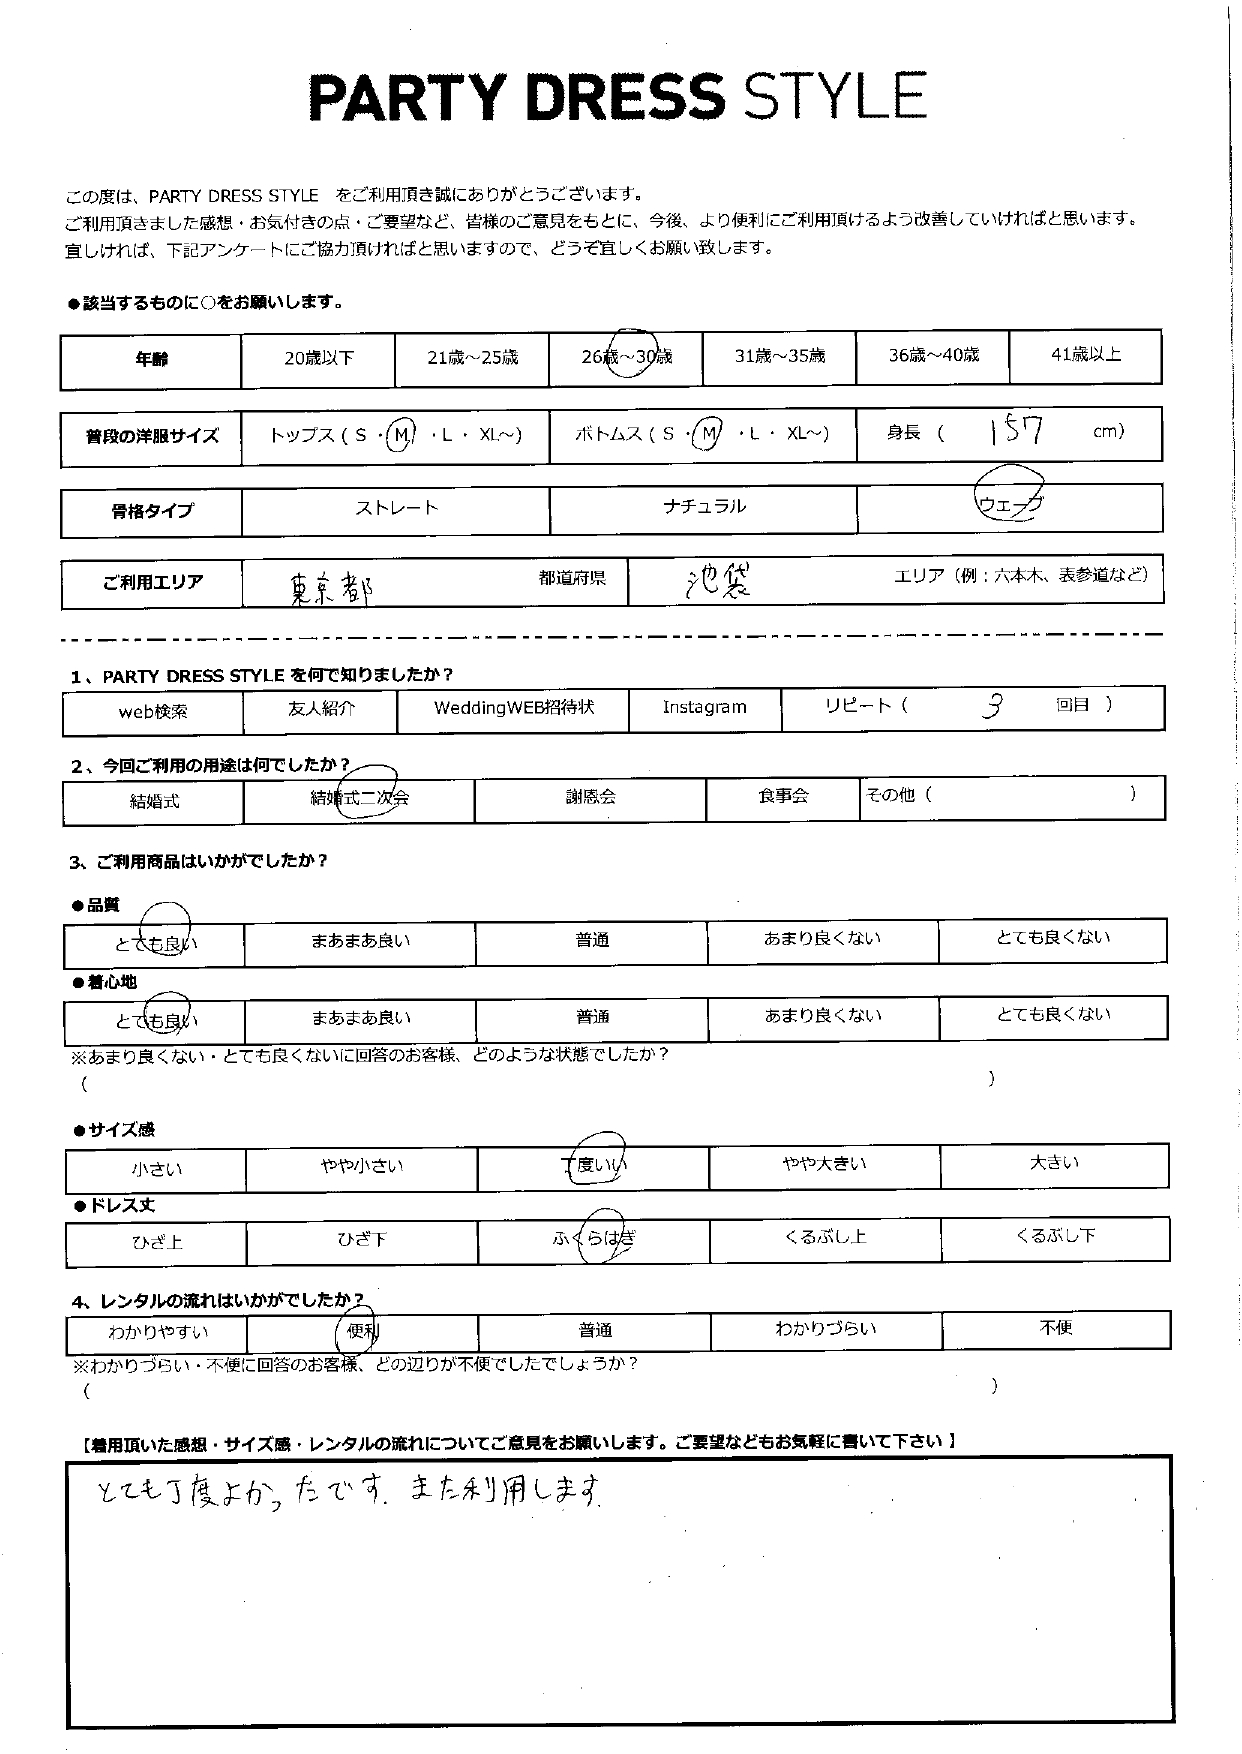 PARTY DRESS STYLE
この度は、PARTY DRESS STYLE をご利用頂き誠にありがとうございます。
ご利用頂きました感想・お気付きの点・ご要望など、皆様のご意見をもとに、今後、より便利にご利用頂けるよう改善していければと思います。
宜しければ、下記アンケートにご協力頂ければと思いますので、どうぞ宜しくお願い致します。
●該当するものに○をお願いします。
年齢 20歳以下 21歳～25歳 26歳～30歳 31歳～35歳 36歳～40歳 41歳以上
普段の洋服サイズ トップス ( S ・ M ・ L ・ XL～) ボトムス ( S ・ M ・ L ・ XL～) 身長 ( 157 cm)
骨格タイプ ストレート ナチュラル ウェーブ
ご利用エリア 東京都 都道府県 池袋 エリア（例：六本木、表参道など）
1、PARTY DRESS STYLE を何で知りましたか？
web検索 友人紹介 WeddingWEB招待状 Instagram リピート ( 3 回目 )
2、今回ご利用の用途は何でしたか？
結婚式 結婚式二次会 謝恩会 食事会 その他 ( )
3、ご利用商品はいかがでしたか？
●品質
とても良い まあまあ良い 普通 あまり良くない とても良くない
●着心地
とても良い まあまあ良い 普通 あまり良くない とても良くない
※あまり良くない・とても良くないに回答のお客様、どのような状態でしたか？
( )
●サイズ感
小さい やや小さい 丁度いい やや大きい 大きい
●ドレス丈
ひざ上 ひざ下 ふくらはぎ くるぶし上 くるぶし下
4、レンタルの流れはいかがでしたか？
わかりやすい 便利 普通 わかりづらい 不便
※わかりづらい・不便に回答のお客様、どの辺りが不便でしたでしょうか？
( )
【着用頂いた感想・サイズ感・レンタルの流れについてご意見をお願いします。ご要望などもお気軽に書いて下さい】
とても丁度よかったです. また利用します.